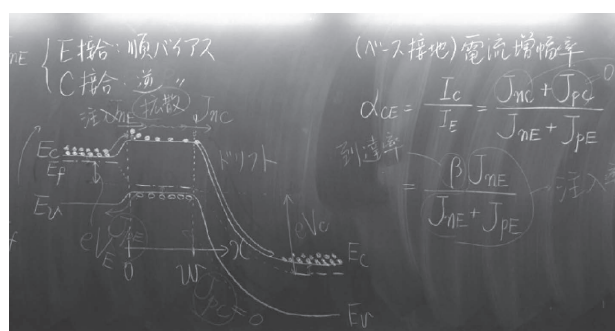 E接合:順バイアス
C接合:逆 〃
注入 JnE 拡散 JnC
Ec
EF
Ev
ドリフト
eVE
eVc
Ec
0 W x
JpC=0
Ev
(ベース接地)電流増幅率
αCE = Ic/IE = (JnC + JpC)/(JnE + JpE)
0
到達率
= βJnE/(JnE + JpE)